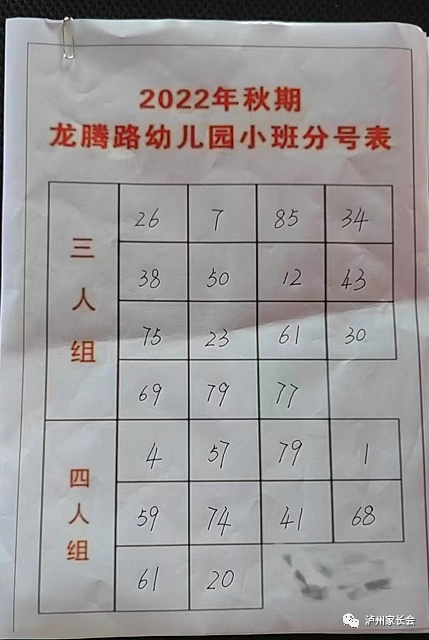 2022年秋期
龙腾路幼儿园小班分号表
三人组
26 7 85 34
38 50 12 43
75 23 61 30
69 79 77
四人组
4 57 79 1
59 74 41 68
61 20
泸州家长会